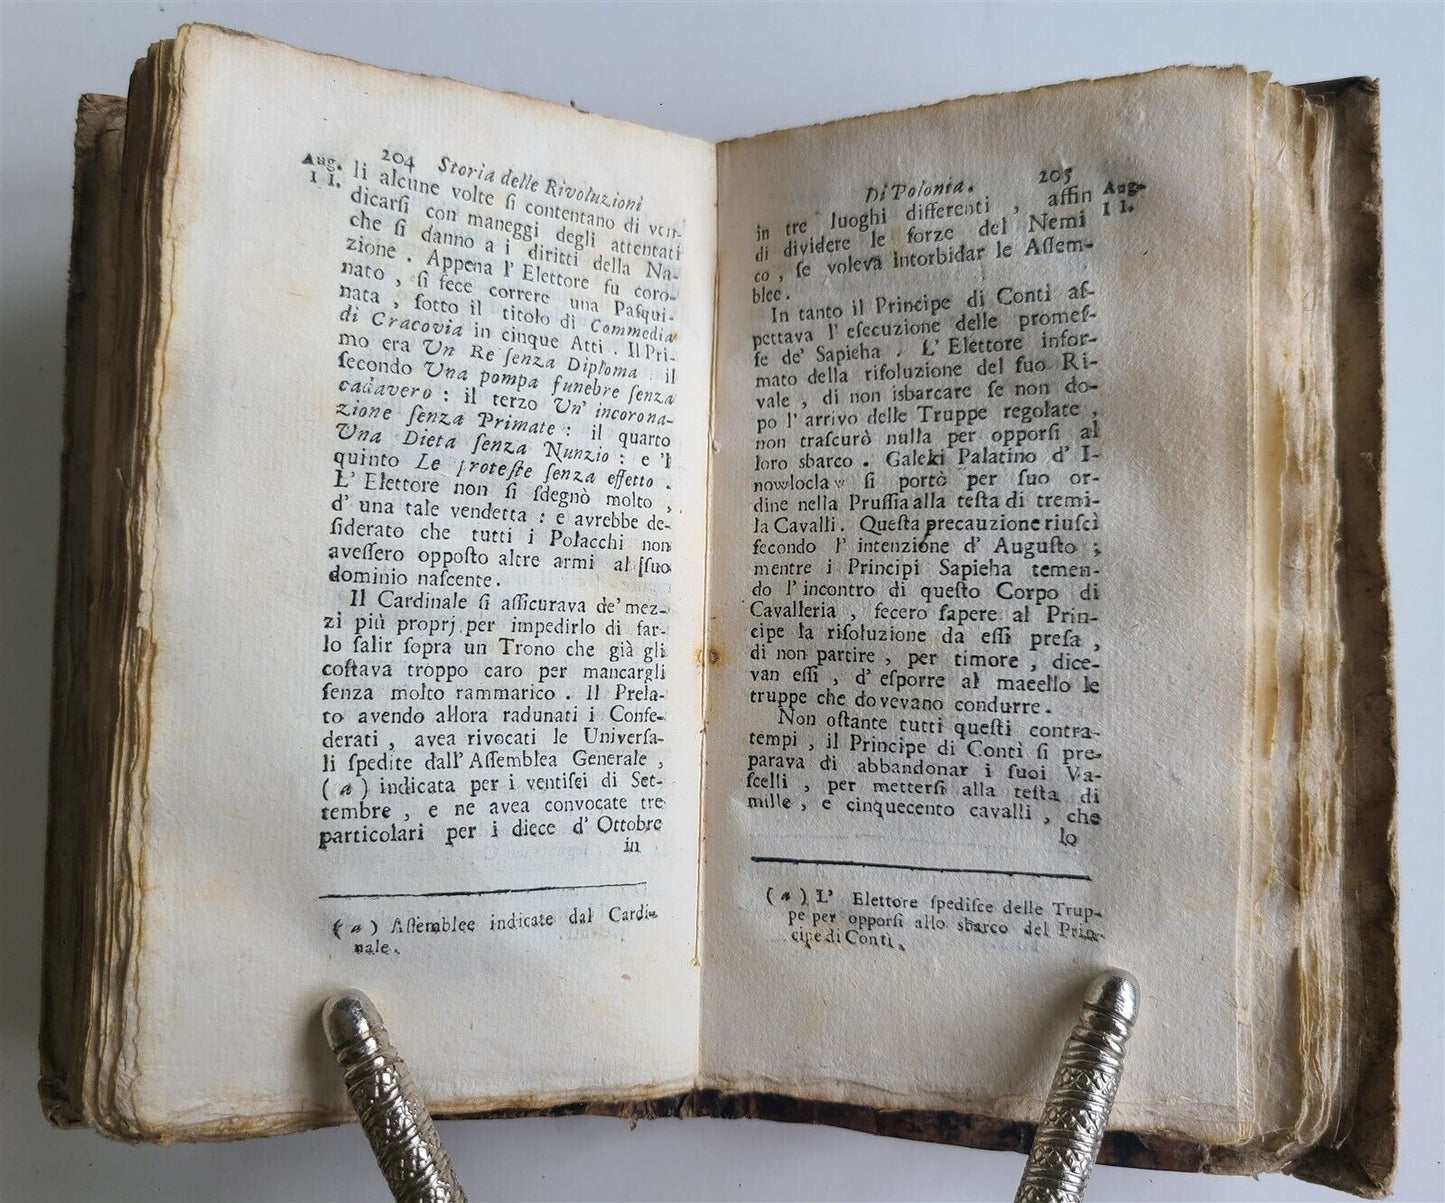 204 Storia delle Rivoluzioni
Aug. li alcune volte ſi contentano di ven-
II. dicarſi con maneggi degli attentati
che ſi danno a i diritti della Na-
zione. Appena l' Elettore fu coro-
nato, ſi fece correre una Paſqui-
nata, ſotto il titolo di Commedia
di Cracovia in cinque Atti. Il Pri-
mo era Un Re ſenza Diploma: il
ſecondo Una pompa funebre ſenza
cadavero: il terzo Un' incorona-
zione ſenza Primate: il quarto
Una Dieta ſenza Nunzio: e 'l
quinto Le proteſte ſenza effetto.
L' Elettore non ſi ſdegnò molto,
d' una tale vendetta: e avrebbe de-
ſiderato che tutti i Polacchi non
aveſſero oppoſto altre armi al [ſuo
dominio naſcente.
Il Cardinale ſi aſſicurava de' mez-
zi più proprj per impedirlo di far-
lo ſalir ſopra un Trono che già gli
coſtava troppo caro per mancargli
ſenza molto rammarico. Il Prela-
to avendo allora radunati i Confe-
derati, avea rivocati le Univerſa-
li ſpedite dall' Aſſemblea Generale,
(a) indicata per i ventiſei di Set-
tembre, e ne avea convocate tre
particolari per i diece d' Ottobre
in
(a) Aſſemblee indicate dal Cardi-
nale.
Di Polonia. 205
in tre luoghi differenti, affin Aug.
di dividere le forze del Nemi II.
co, ſe voleva intorbidar le Aſſem-
blee.
In tanto il Principe di Contì aſ-
pettava l' eſecuzione delle promeſ-
ſe de' Sapieha. L' Elettore infor-
mato della riſoluzione del ſuo Ri-
vale, di non isbarcare ſe non do-
po l' arrivo delle Truppe regolate,
non traſcurò nulla per opporſi al
loro sbarco. Galeki Palatino d' I-
nowloclaw ſi portò per ſuo or-
dine nella Pruſſia alla teſta di tremi-
la Cavalli. Queſta precauzione riuſcì
ſecondo l' intenzione d' Auguſto;
mentre i Principi Sapieha temen-
do l' incontro di queſto Corpo di
Cavalleria, fecero ſapere al Prin-
cipe la riſoluzione da eſſi preſa,
di non partire, per timore, dice-
van eſſi, d' eſporre al macello le
truppe che dovevano condurre.
Non oſtante tutti queſti contra-
tempi, il Principe di Contì ſi pre-
parava di abbandonar i ſuoi Va-
ſcelli, per metterſi alla teſta di
mille, e cinquecento cavalli, che
lo
(a) L' Elettore ſpediſce delle Trup-
pe per opporſi allo sbarco del Prin-
cipe di Contì.